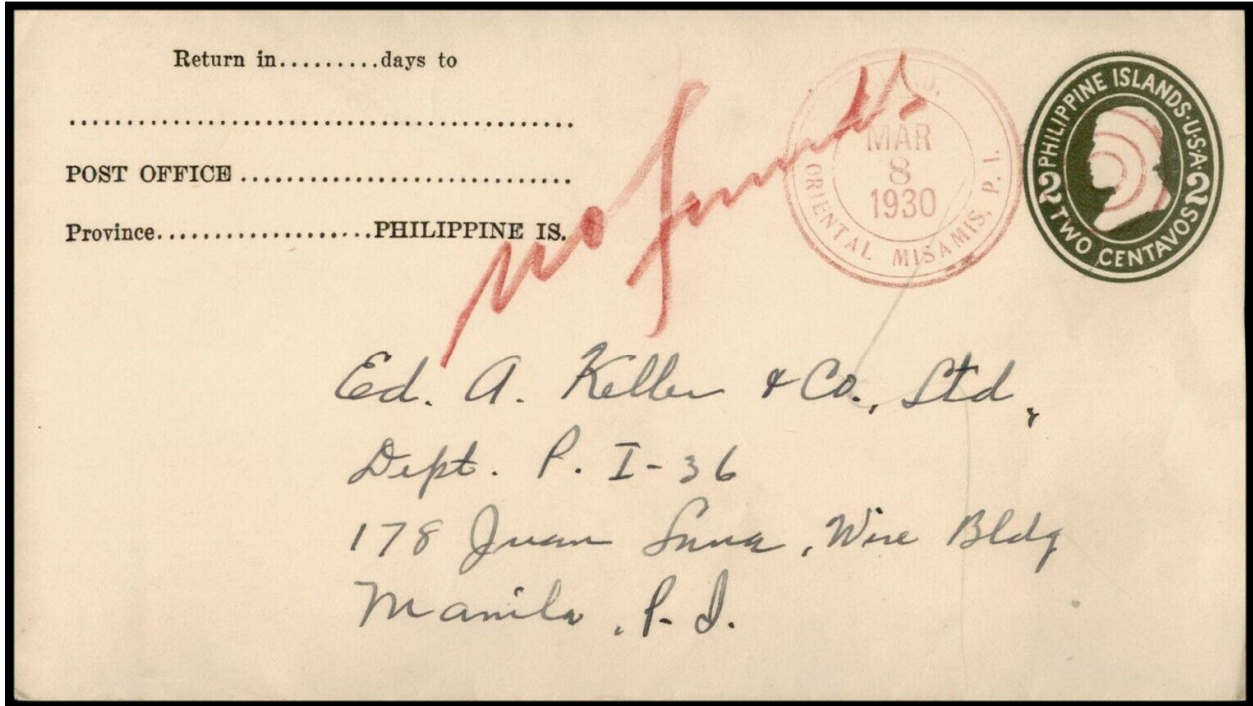 Return in.........days to
POST OFFICE
Province...................PHILIPPINE IS.
no funds
MAR
8
1930
ORIENTAL MISAMIS, P. I.
PHILIPPINE ISLANDS·U·S·A·
2 2
TWO CENTAVOS
Ed. A. Keller & Co., Ltd.,
Dept. P. I-36
178 Juan Luna, Wise Bldg
Manila, P. I.